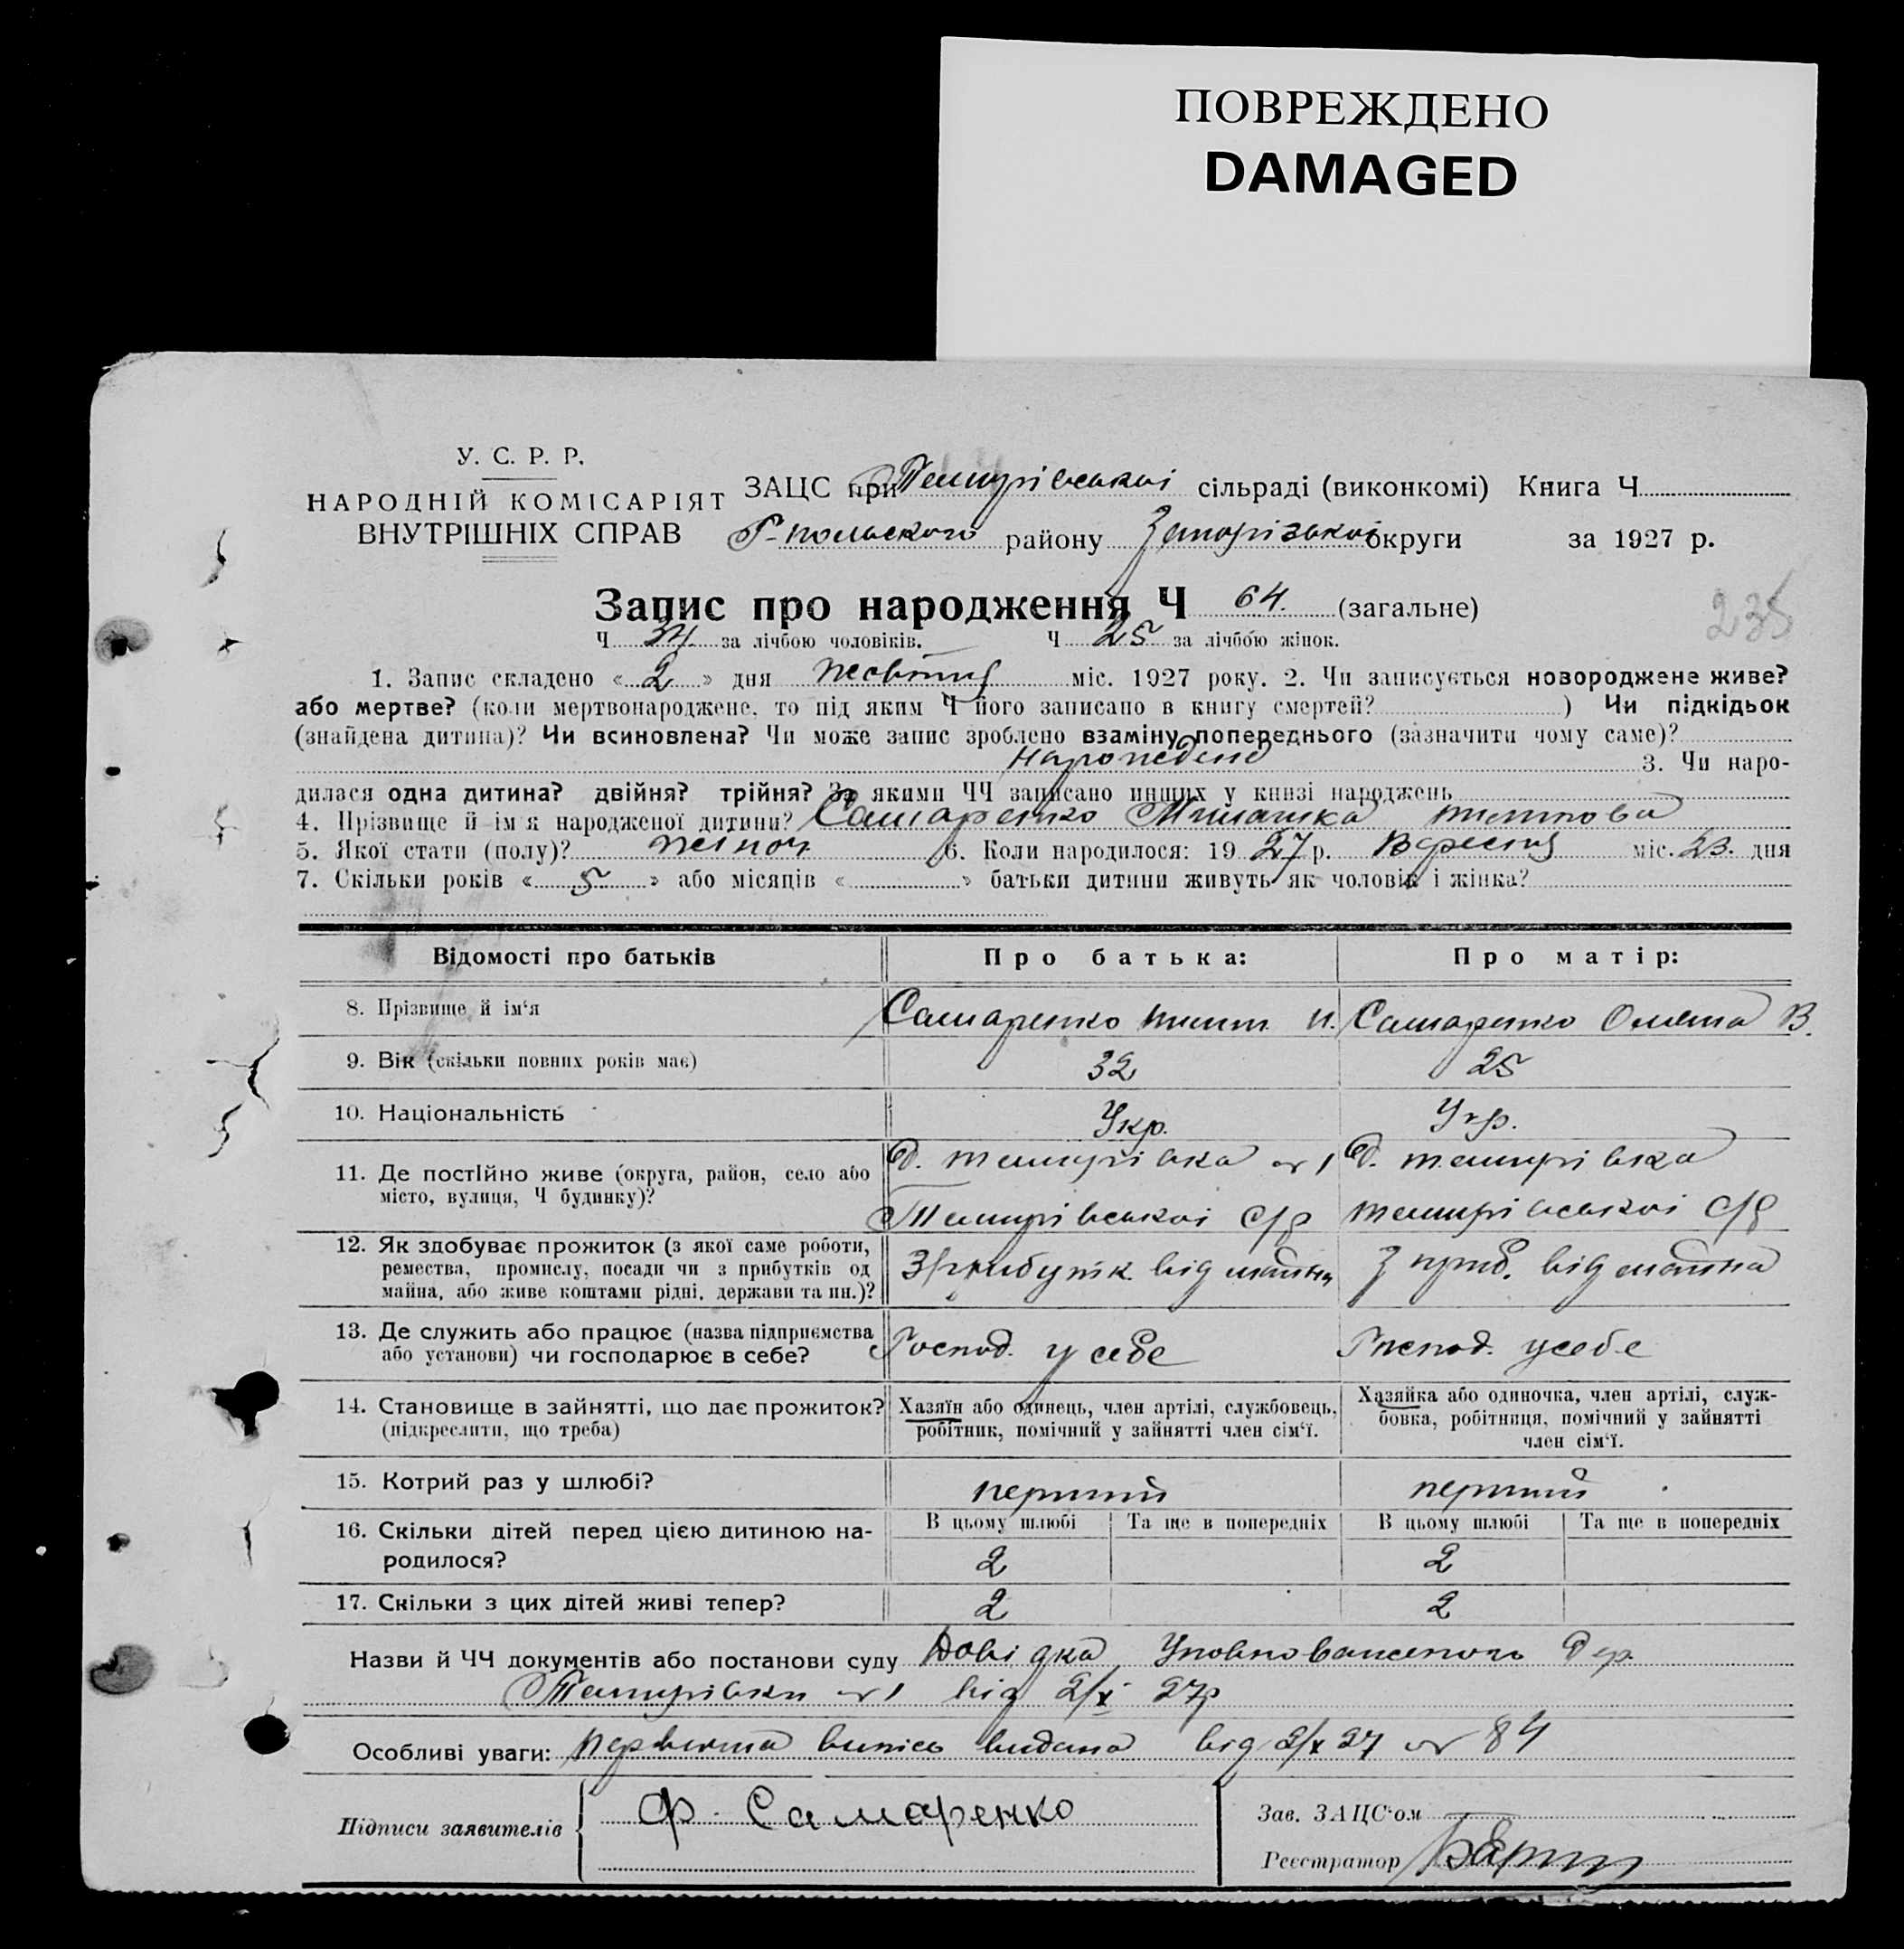 ПОВРЕЖДЕНО
DAMAGED
У. С. Р. Р.
НАРОДНІЙ КОМІСАРІЯТ
ВНУТРІШНІХ СПРАВ
ЗАЦС при Темирівській сільраді (виконкомі) Книга Ч
польського району Запорізької округи за 1927 р.
Запис про народження Ч 64. (загальне)
235
Ч 34 за лічбою чоловіків. Ч 25 за лічбою жінок.
1. Запис складено « 2 » дня жовтня міс. 1927 року. 2. Чи записується новороджене живе?
або мертве? (коли мертвонароджене, то під яким Ч його записано в книгу смертей? ) Чи підкідьок
(знайдена дитина)? Чи всиновлена? Чи може запис зроблено взаміну попереднього (зазначити чому саме)?
3. Чи наро-
дилася одна дитина? двійня? трійня? За якими ЧЧ записано инших у книзі народжень
4. Прізвище й ім'я народженої дитини? Самаренко
5. Якої стати (полу)? жіноч 6. Коли народилося: 19 27 р. Вересня міс. 23. дня
7. Скільки років « 5 » або місяців « » батьки дитини живуть як чоловік і жінка?
Відомості про батьків Про батька: Про матір:
8. Прізвище й ім'я Самаренко тимт. И. Самаренко Олена В.
9. Вік (скільки повних років має) 32 25
10. Національність Укр. Укр.
11. Де постійно живе (округа, район, село або д. темирівка № 1 д. темирівка
місто, вулиця, Ч будинку)? Темирівської с/р темирівської с/р
12. Як здобуває прожиток (з якої саме роботи,
ремества, промислу, посади чи з прибутків од З прибутк. від майна З приб. від майна
майна, або живе коштами рідні, держави та ин.)?
13. Де служить або працює (назва підприємства
або установи) чи господарює в себе? Господ. у себе Господ. у себе
14. Становище в зайнятті, що дає прожиток? Хазяїн або одинець, член артілі, службовець, Хазяйка або одиночка, член артілі, служ-
(підкреслити, що треба) робітник, помічний у зайнятті член сім'ї. бовка, робітниця, помічний у зайнятті
член сім'ї.
15. Котрий раз у шлюбі? перший перший
16. Скільки дітей перед цією дитиною на- В цьому шлюбі Та ще в попередніх В цьому шлюбі Та ще в попередніх
родилося? 2 2
17. Скільки з цих дітей живі тепер? 2 2
Назви й ЧЧ документів або постанови суду Довідка Уповноваженого Дер.
Темирівки № 1 від 2/X 27р
Особливі уваги: первична випись видана від 2/X 27 № 84
Підписи заявителів Ф. Самаренко Зав. ЗАЦС'ом
Реєстратор